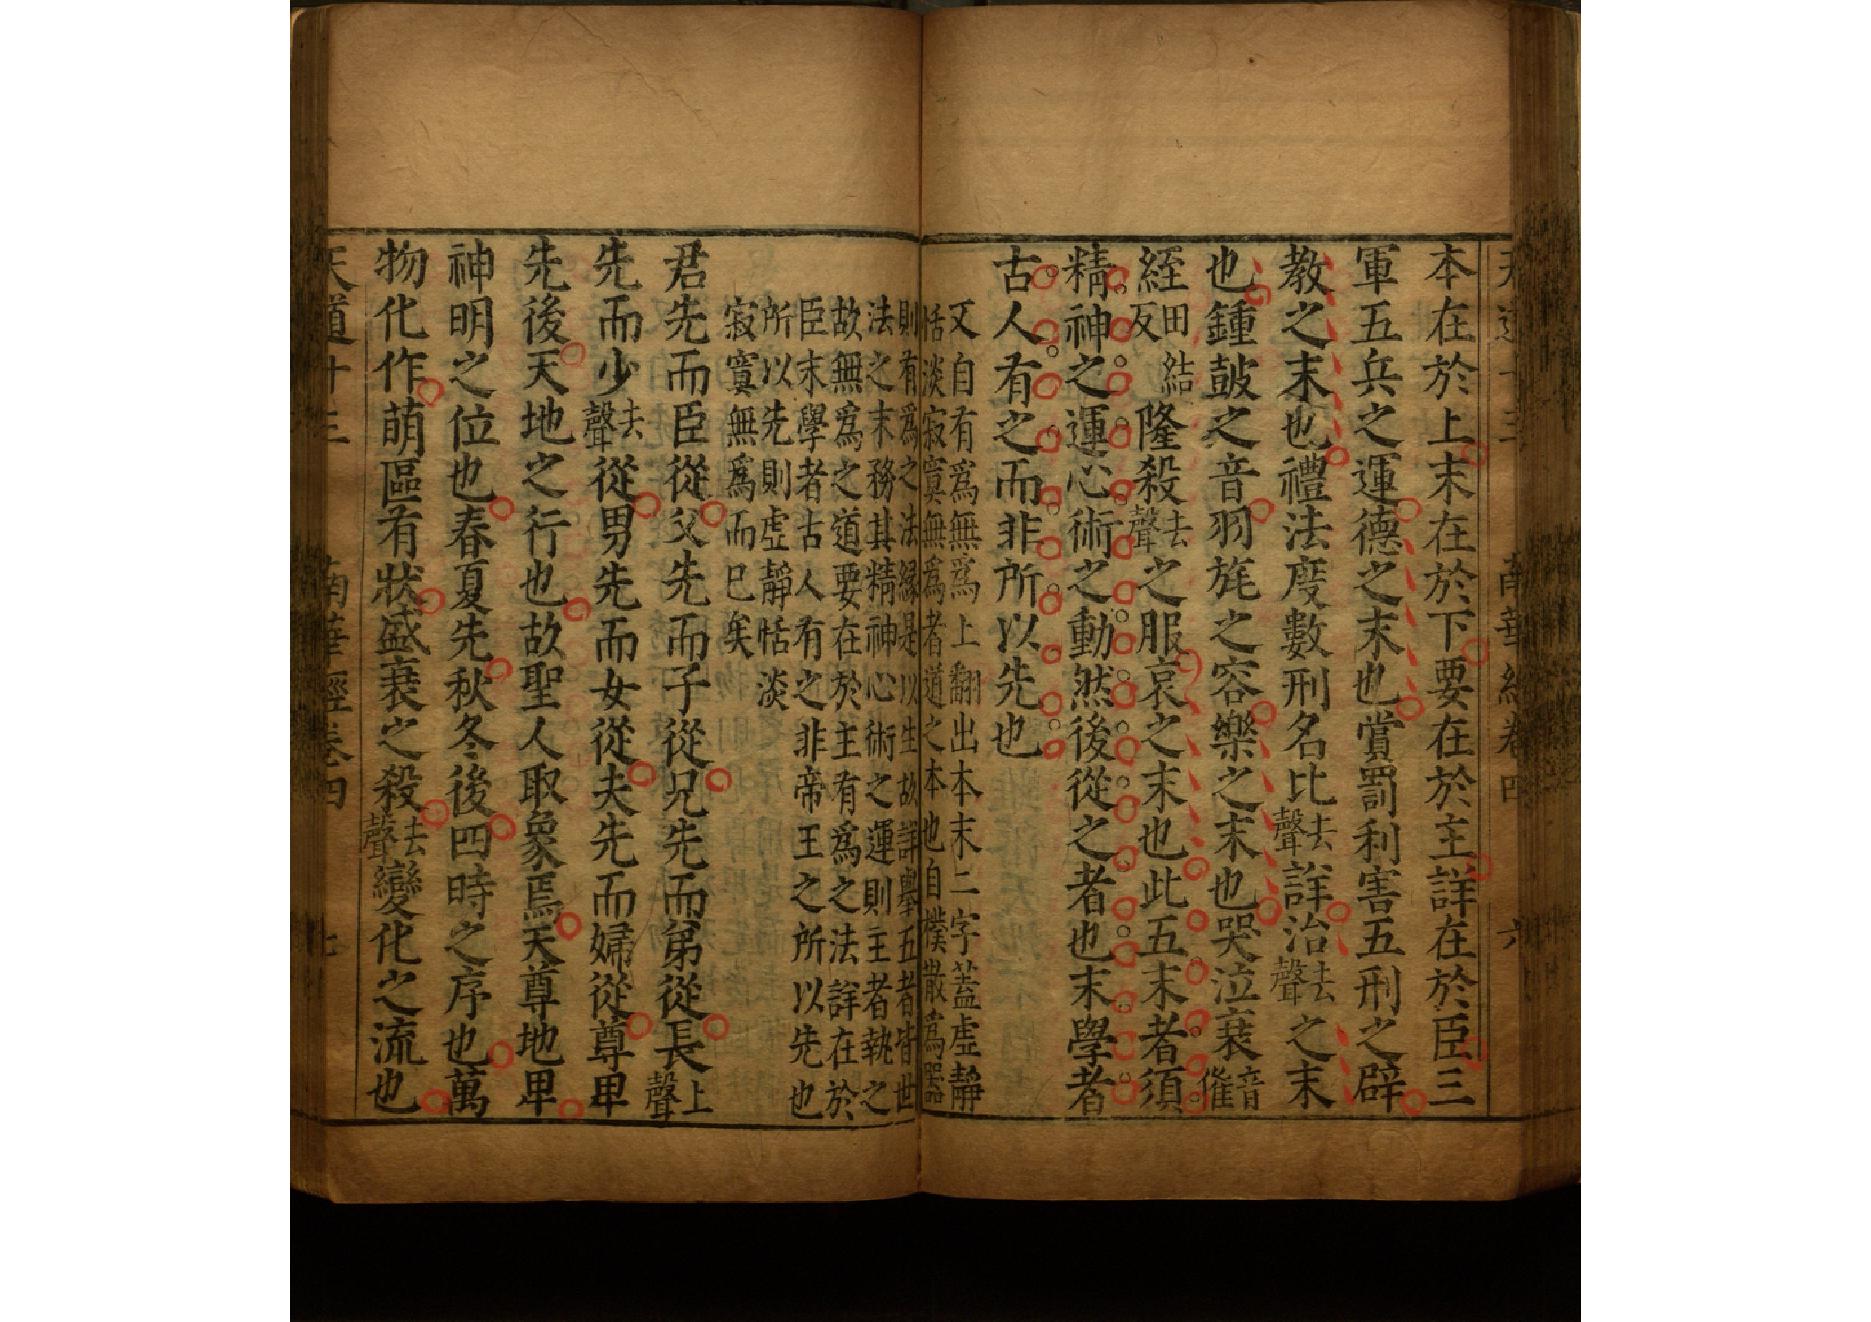 天道十三 南華經卷四 六
本在於上末在於下要在於主詳在於臣三
軍五兵之運德之末也賞罰利害五刑之辟
教之末也禮法度數刑名比去聲詳治去聲之末
也鍾鼓之音羽旄之容樂之末也哭泣衰音催
絰田結反隆殺去聲之服哀之末也此五末者須
精神之運心術之動然後從之者也末學者
古人有之而非所以先也
又自有為無為上翻出本末二字蓋虛靜
恬淡寂寞無為者道之本也自樸散為器
則有為之法緣是以生故詳舉五者皆世
法之末務其精神心術之運則主者執之
故無為之道要在於主有為之法詳在於
臣末學者古人有之非帝王之所以先也
所以先則虛靜恬淡
寂寞無為而已矣
君先而臣從父先而子從兄先而弟從長上聲
先而少去聲從男先而女從夫先而婦從尊卑
先後天地之行也故聖人取象焉天尊地卑
神明之位也春夏先秋冬後四時之序也萬
物化作萌區有狀盛衰之殺去聲變化之流也
天道十三 南華經卷四 七